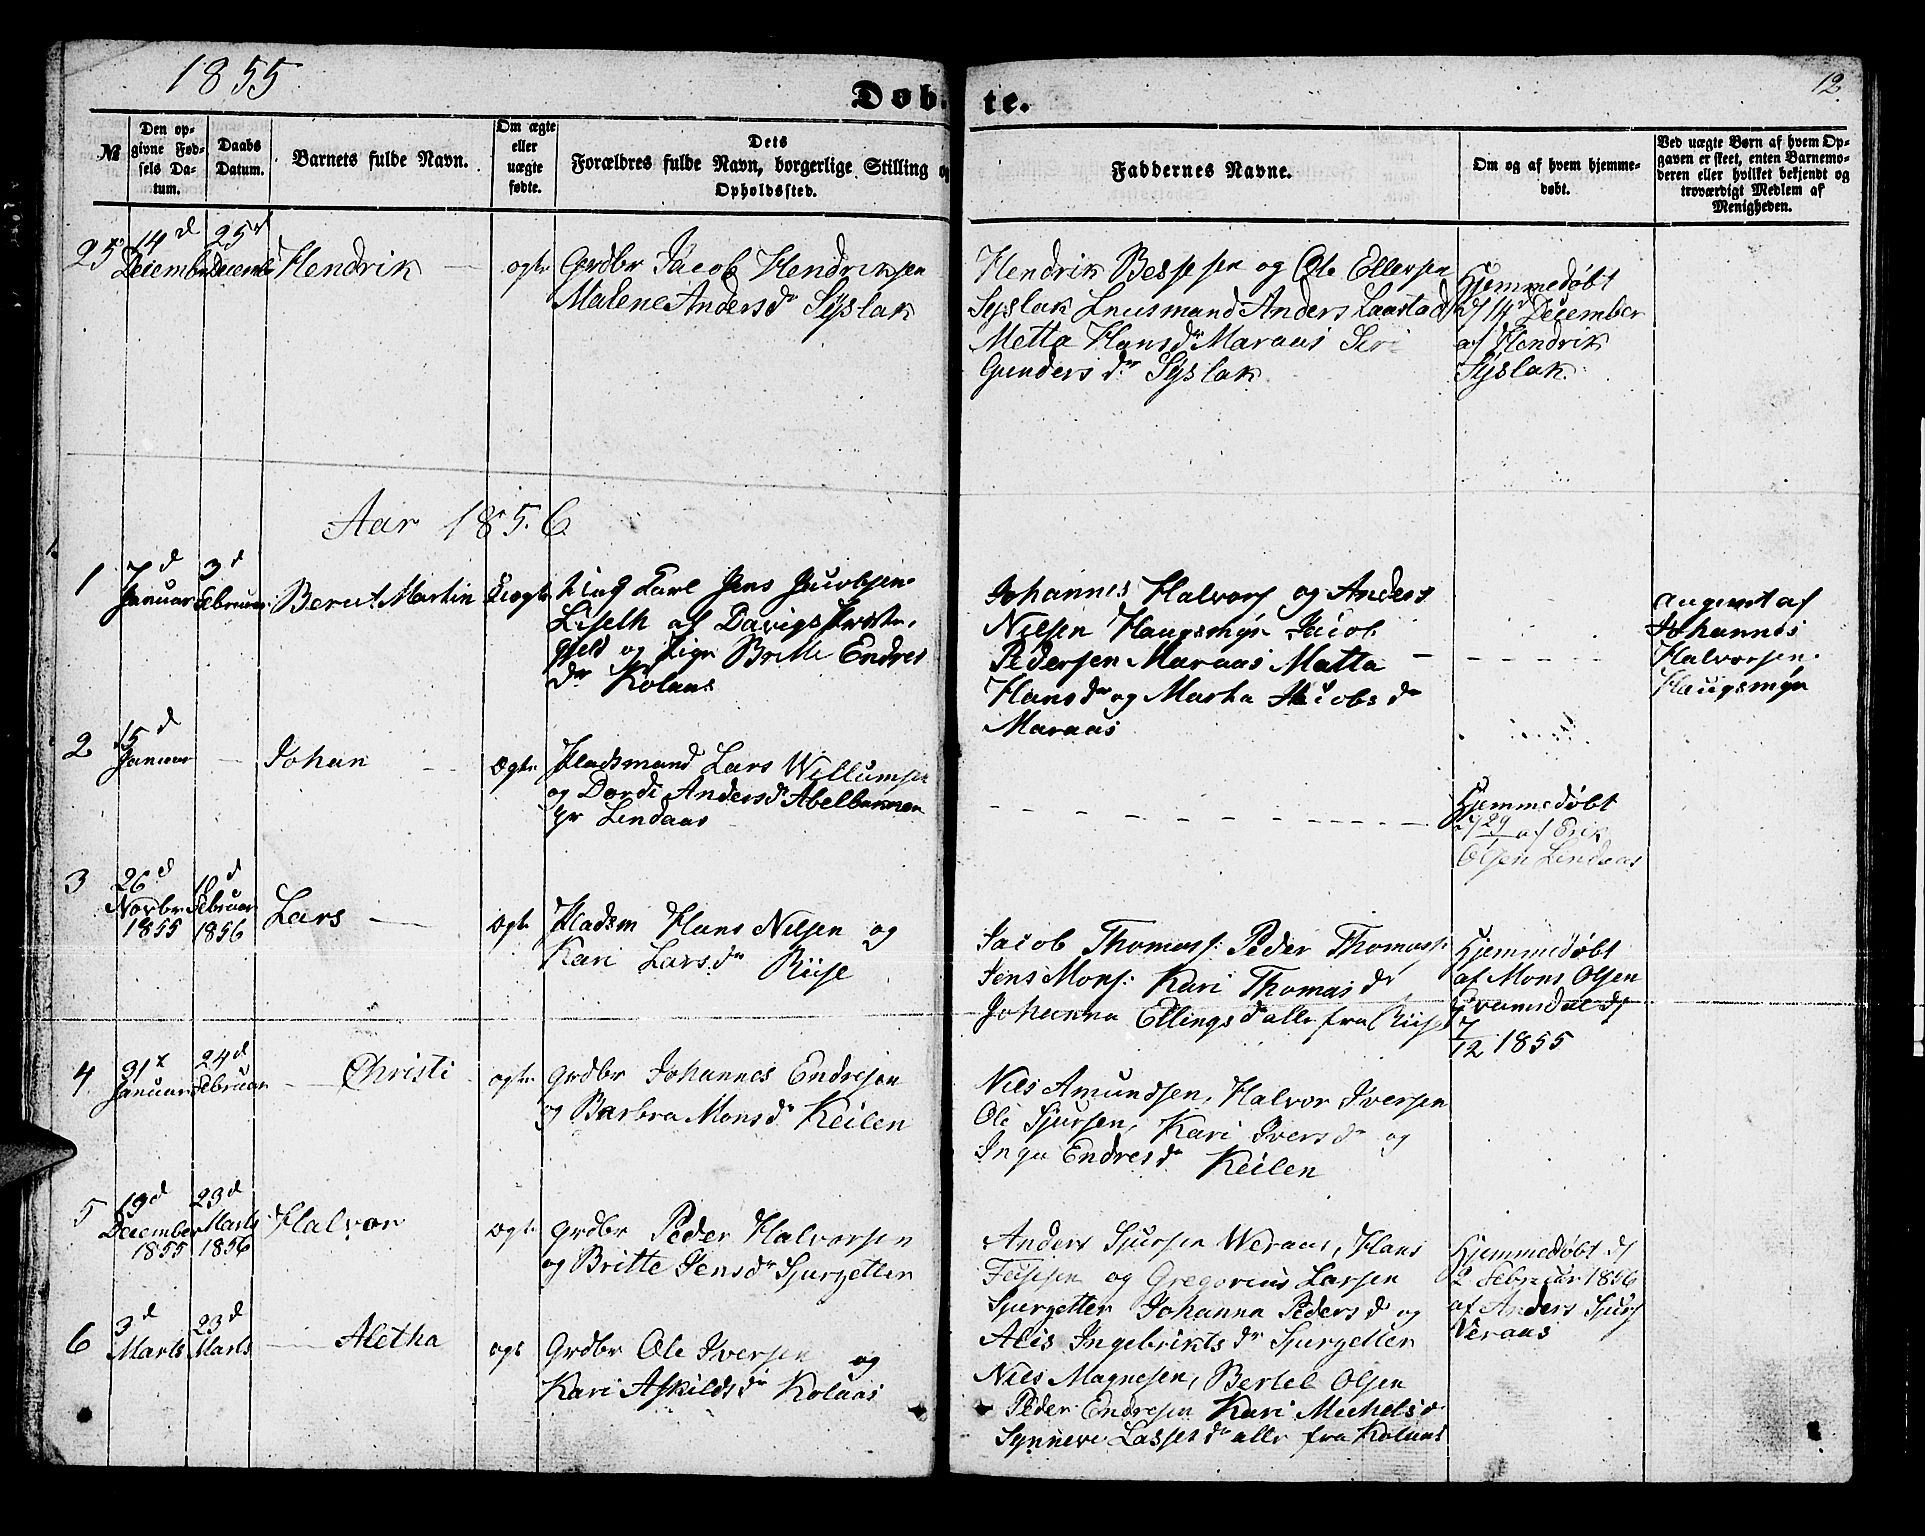 1855
Døb- te.
12
№
Den op-
givne Fød-
sels Da-
tum.
Daabs
Datum.
Barnets fulde Navn.
Om ægte
eller
uægte
fødte.
Dets
Forældres fulde Navn, borgerlige Stilling og
Opholdssted.
Faddernes Navne.
Om og af hvem hjemme-
døbt.
Ved uægte Børn af hvem Op-
gaven er skeet, enten Barnemo-
deren eller hvilket bekjendt og
troværdigt Medlem af
Menigheden.
25
14d
December
25d
Decemb
Hendrik
ogte
Grdbr Jacob Hendriksen
Malene Andersdr Syslak
Hendrik Bessesen og Ole Ellersen
Syslak Lnusmand Anders Laastad
Metta Hansdr Maraas Siri
Gundersdr Syslak
Hjemmedøbt
d/ 14d December
af Hendrik
Syslak
Aar 1856
1
7d
Januar
3d
Februar
Berut Martin
Uegte
Ung Karl Jens Jacobsen
Liseth af Davigs Prste-
gjeld og Pige Britte Endres
dr Kolaas
Johannes Halvors og Anders
Nilsen Haugsmyr Jacob
Pedersen Maraas Matta
Hansdr og Marha Jacobsdr
Maraas
angivet af
Johannes
Halvorsen
Haugsmyr
2
15d
Januar
Johan
Ogte
Pladsmand Lars Willumsen
og Dordi Andersdr Abelbunnen
gr Lindaas
Hjemmedøbt
d/ 29 af Erik
Olsen Lindaas
3
26d
Novbr
1855
10d
Februar
1856
Lars
ogte
Pladsm Hans Nilsen og
Kari Larsdr Riise
Jacob Thomass: Peder Thomass:
Jens Mons: Kari Thomasdr
Johanna Ellingsdr alle fra Riise
Hjemmedøbt
af Mons Olsen
Qvamsdal d/
7/12 1855
4
31t
Januar
24d
Februar
Christi
ogte
grdbr Johannes Endresen
og Barbra Monsdr Keilen
Nils Amundsen, Halvor Iversen
Ole Sjursen, Kari Iversdr og
Inga Endresdr Keilen
5
19d
December
1855
23d
Marts
1856
Halvor
Ogte
grdbr Peder Halvorsen
og Britte Jensdr Spurzetter
Anders Sjursen Weraas, Hans
og Gregorius Larsen
Spurzetter Johanna Pedersdr og
Alis Ingebriktsdr Spurzetter
Hjemmedøbt d/
2 Februar 1856
af Anders Sjurs
Veraas
6
3d
Marts
23d
Marts
Aletha
ogt
Grdbr Ole Iversen og
Kari Askildsdr Kolaas
Nils Magnesen, Bertel Olsen
Peder Endresen Kari Michelsdr
Synneve Lassesdr alle fra Kolaas